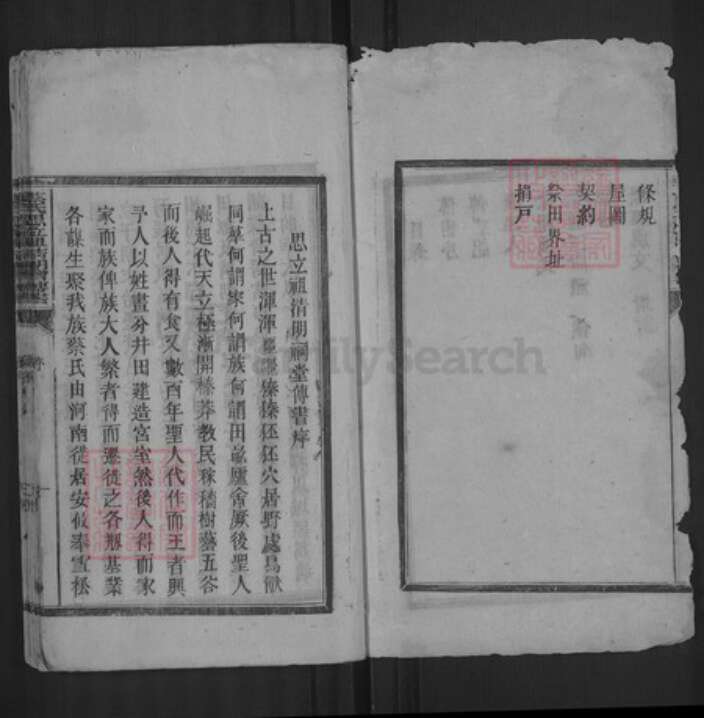 條規
屋圖
契約
祭田界址
捐戶
思立祖清明祠堂傳書序
上古之世渾渾噩噩榛榛狉狉穴居野處鳥獸
同羣何謂家何謂族何謂田園廬舍厥後聖人
崛起代天立極漸開榛莽教民稼穡樹藝五谷
而後人得有食又數百年聖人代作而王者興
予人以姓畫分井田建造宮室然後人得而家
家而族俾族大人繁者得而遷徙之各瓶基業
各謀生聚我族蔡氏由河南徙居安
FamilySearch